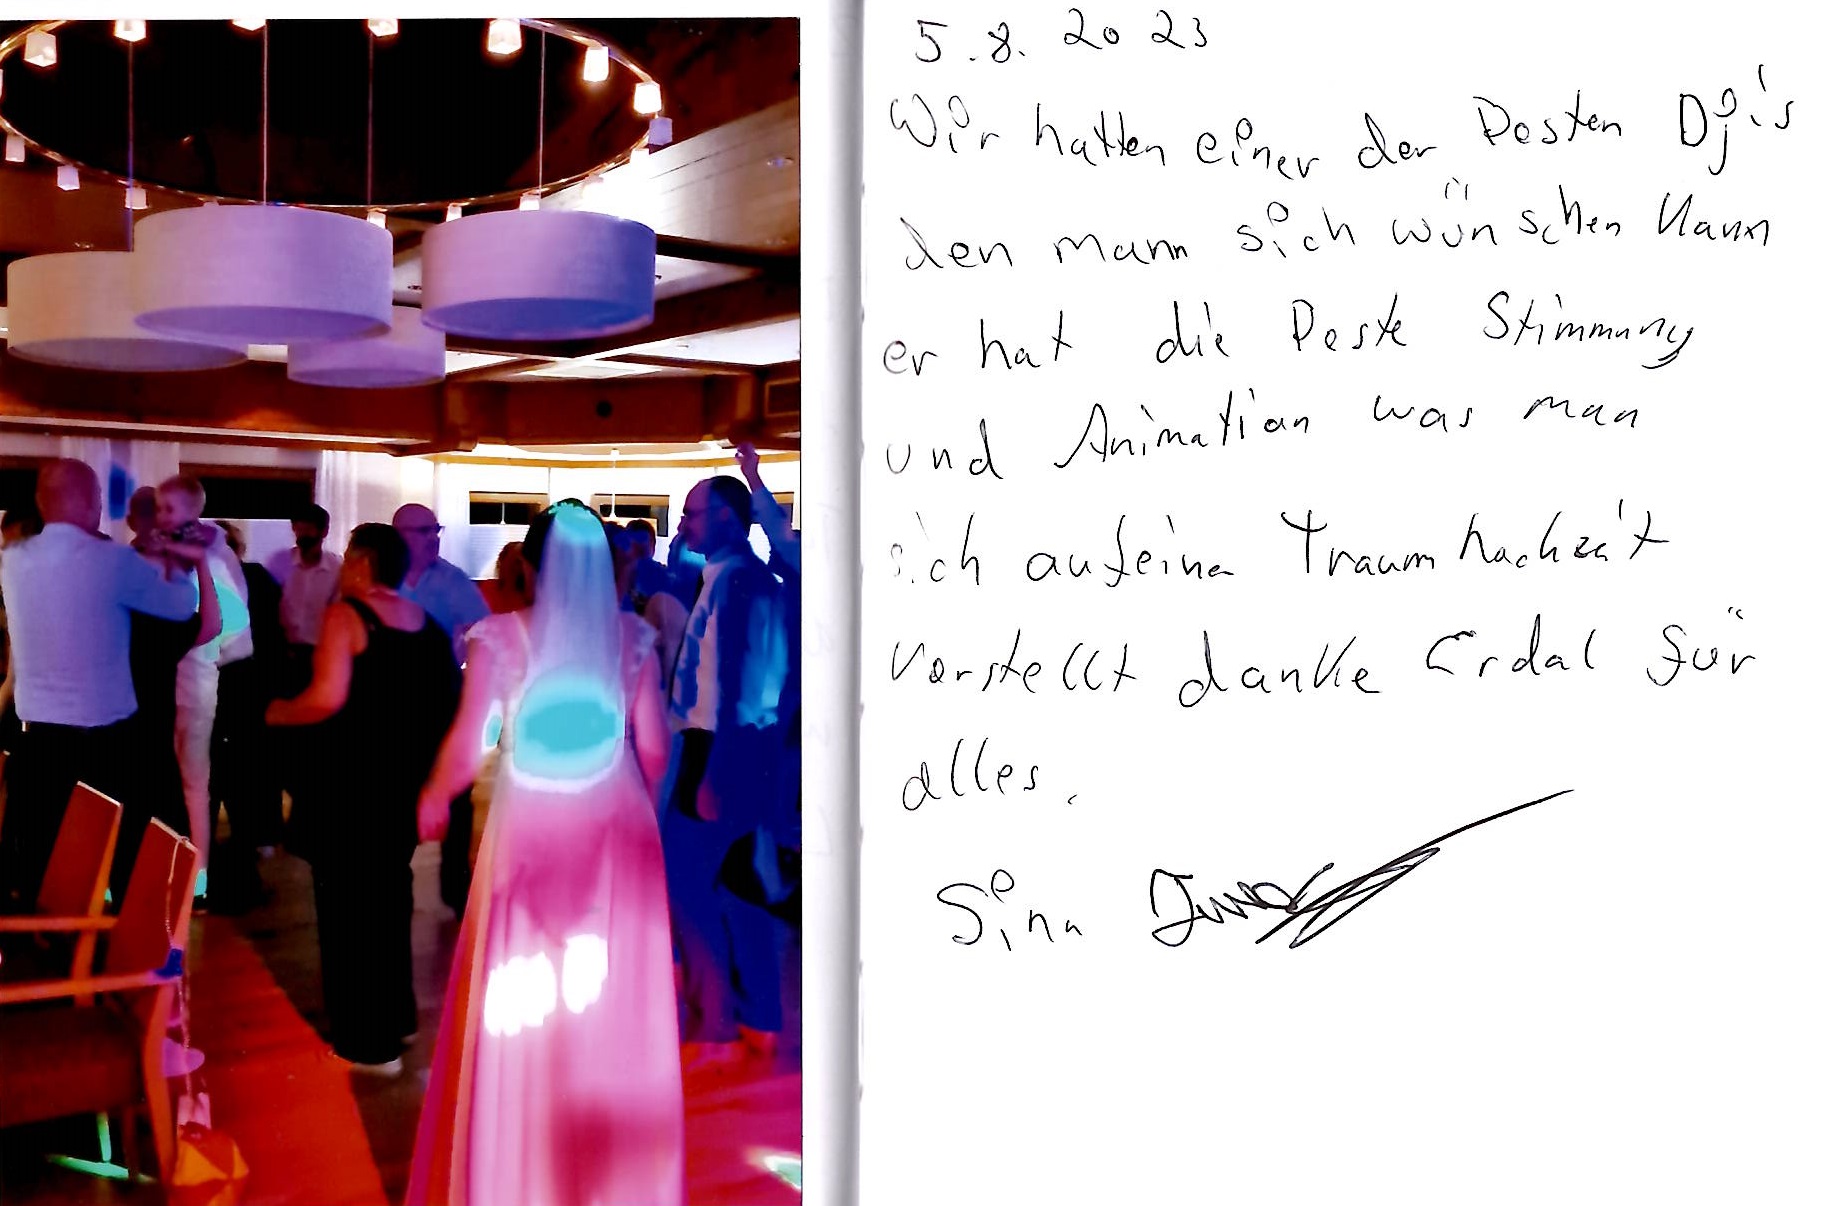 5.8.2023
Wir hatten einer der Besten Dj's
den mann sich wünschen Kann
er hat die Beste Stimmung
und Animation was man
sich auf einer Traumhochzeit
vorstellt danke Erdal für
alles.
Sina